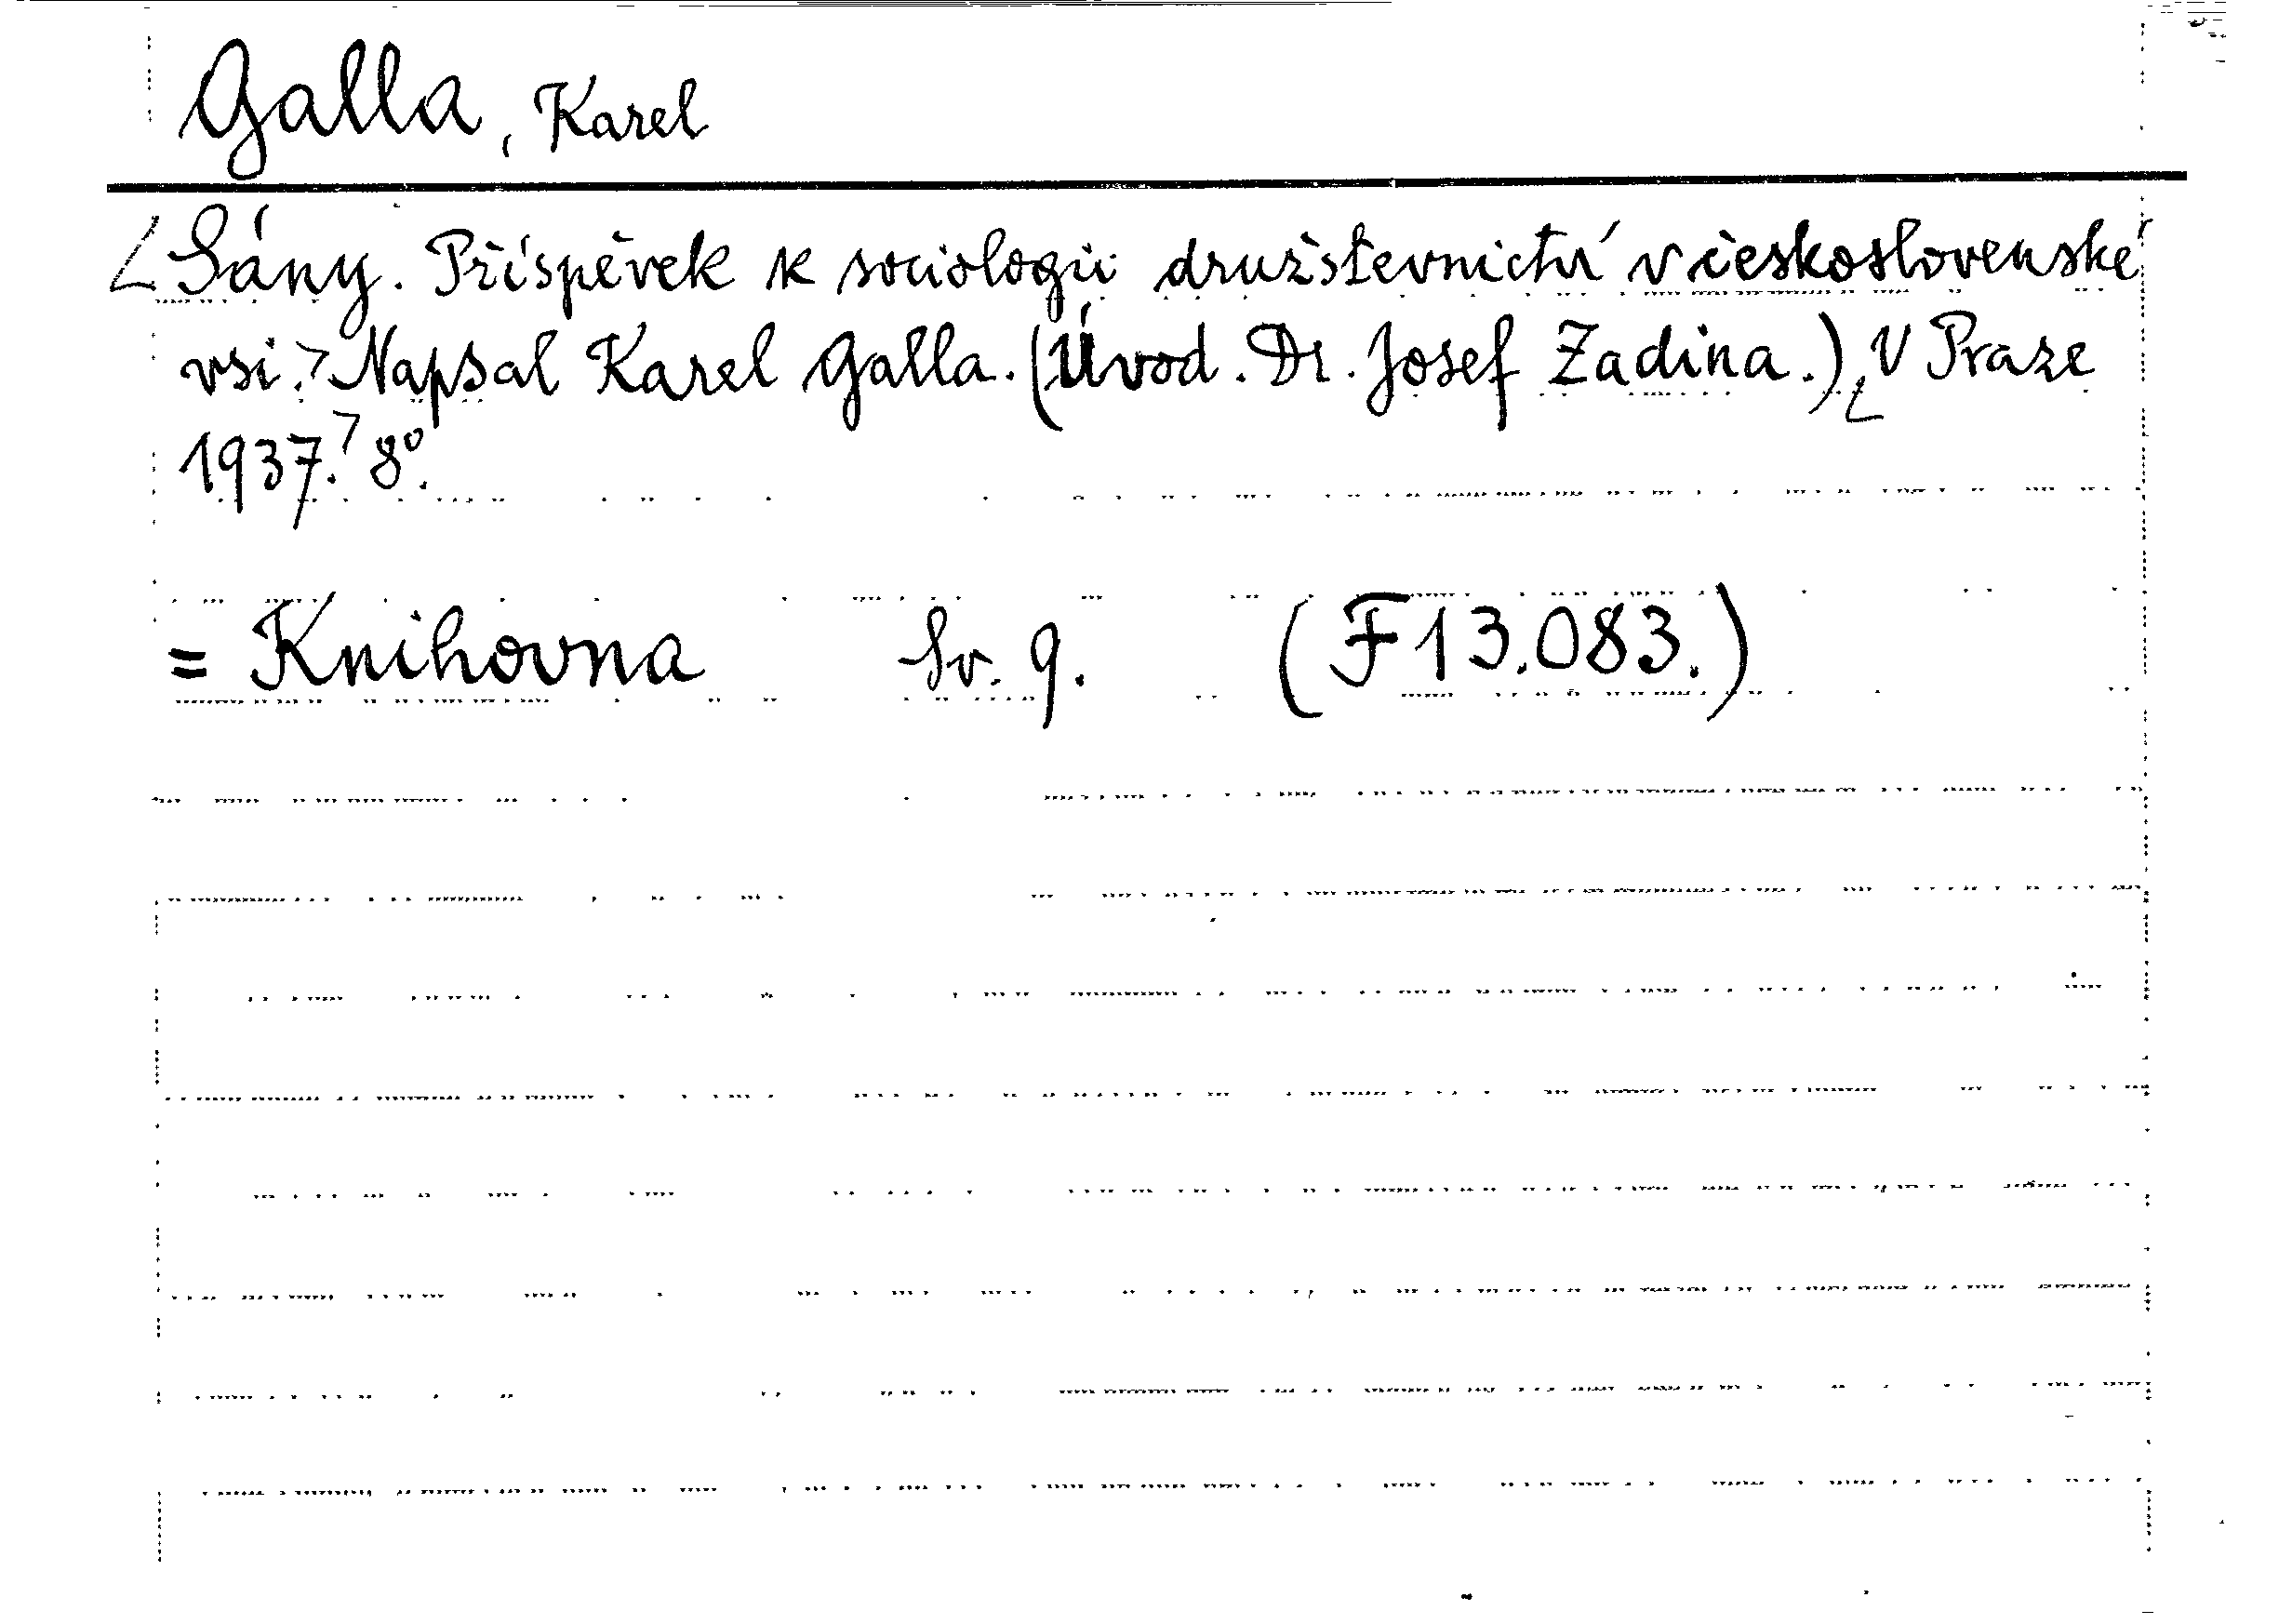 Galla, Karel
Sány. Příspěvek k sociologii družstevnictví v československé
vsi. Napsal Karel Galla. (Úvod. Dr. Josef Zadina.) V Praze
1937. 8°.
= Knihovna Sv. 9. (F 13.083.)